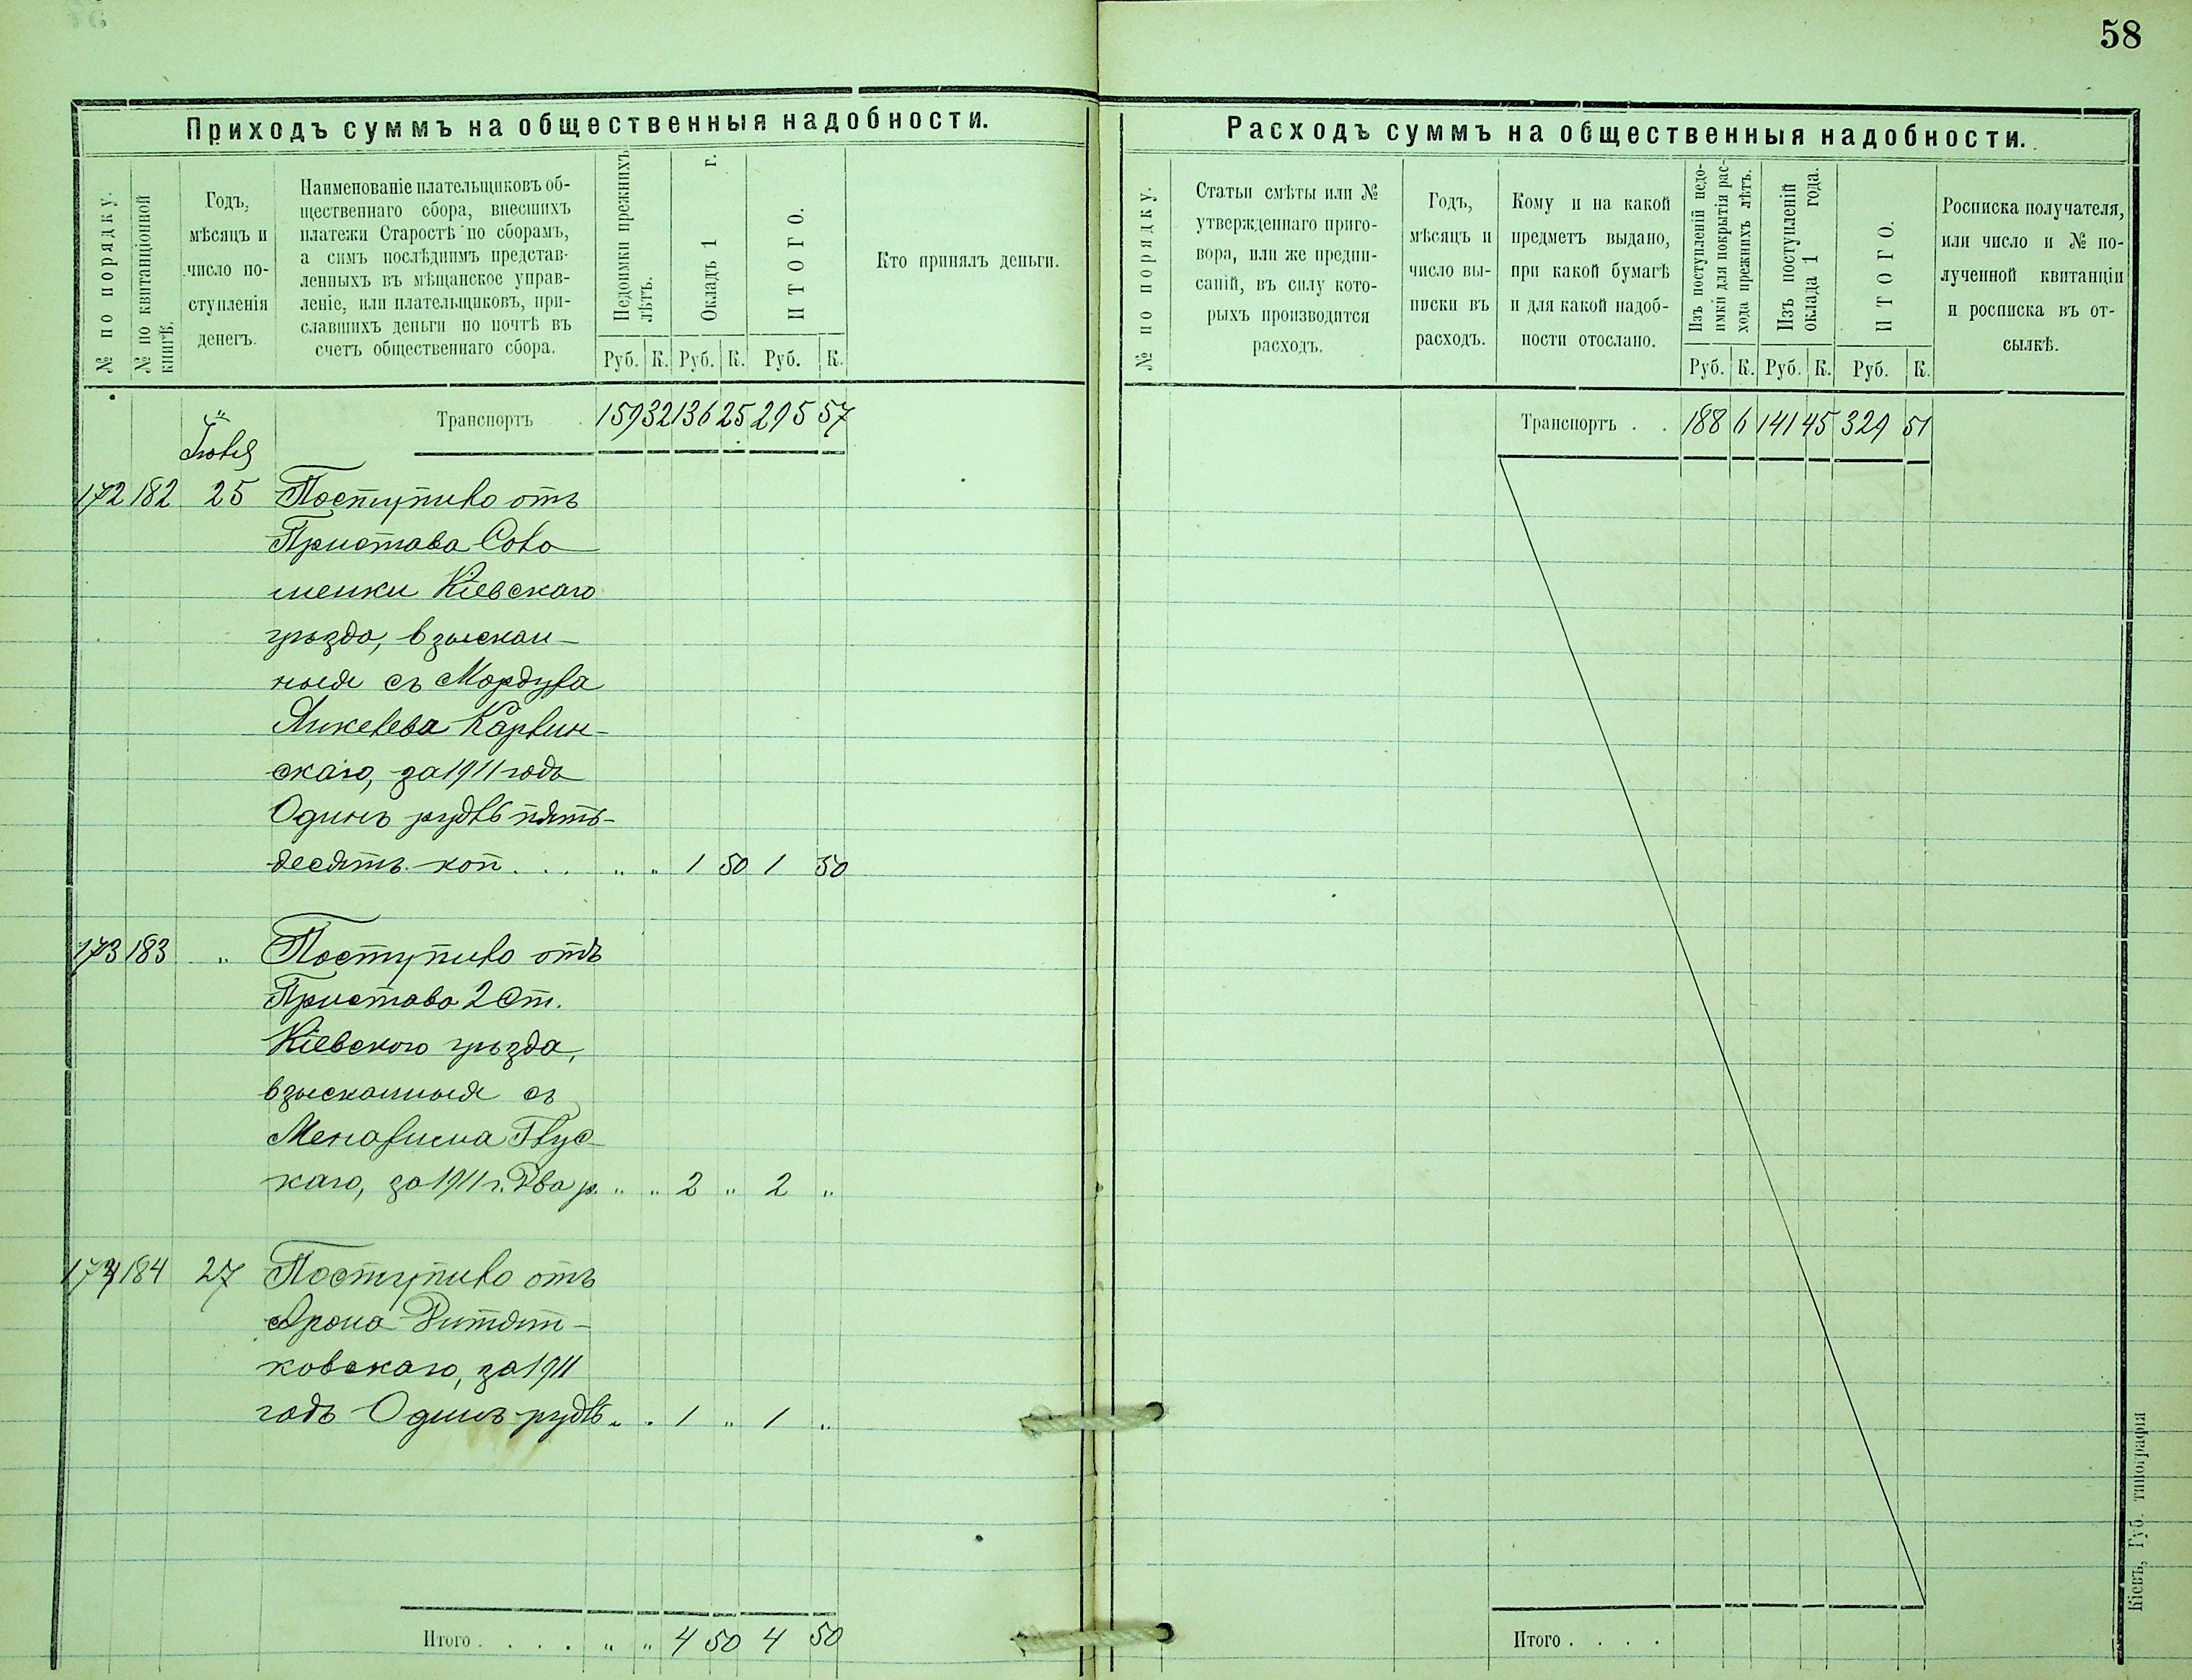 58
Приходъ суммъ на общественныя надобности.
№ по порядку.
№ по квитанціонной
книгѣ.
Годъ,
мѣсяцъ и
число по-
ступленія
денегъ.
Наименованіе плательщиковъ об-
щественнаго сбора, внесшихъ
платежи Старостѣ по сборамъ,
а симъ послѣднимъ представ-
ленныхъ въ мѣщанское управ-
леніе, или плательщиковъ, при-
славшихъ деньги по почтѣ въ
счетъ общественнаго сбора.
Недоимки прежнихъ
лѣтъ.
Окладъ 1 г.
ИТОГО.
Руб. К. Руб. К. Руб. К.
Кто принялъ деньги.
Транспортъ 159 32 136 25 295 57
Іюля
172 182 25 Поступило отъ
Пристава Соло
менки Кіевскаго
уѣзда, взыскан-
ныя съ Мордуха
Янкелева Карлин-
скаго, за 1911 годъ
Одинъ рубль пять-
десятъ коп. . . " " 1 50 1 50
173 183 " Поступило отъ
Пристава 2 Ст.
Кіевского уѣзда,
взысканныя съ
Менахима Глус
каго, за 1911 г. Два р. " " 2 " 2 "
174 184 27 Поступило отъ
Арона Дитят-
ковскаго, за 1911
годъ Одинъ рубль " " 1 " 1 "
Итого . . . . " " 4 50 4 50
Расходъ суммъ на общественныя надобности.
№ по порядку.
Статьи смѣты или №
утвержденнаго приго-
вора, или же предпи-
саній, въ силу кото-
рыхъ производится
расходъ.
Годъ,
мѣсяцъ и
число вы-
писки въ
расходъ.
Кому и на какой
предметъ выдано,
при какой бумагѣ
и для какой надоб-
ности отослано.
Изъ поступленій недо-
имки для покрытія рас-
хода прежнихъ лѣтъ.
Изъ поступленій
оклада 1 года.
ИТОГО.
Руб. К. Руб. К. Руб. К.
Росписка получателя,
или число и № по-
лученной квитанціи
и росписка въ от-
сылкѣ.
Транспортъ . . 188 6 141 45 329 51
Итого . . . .
Кіевъ, Губ. типографія